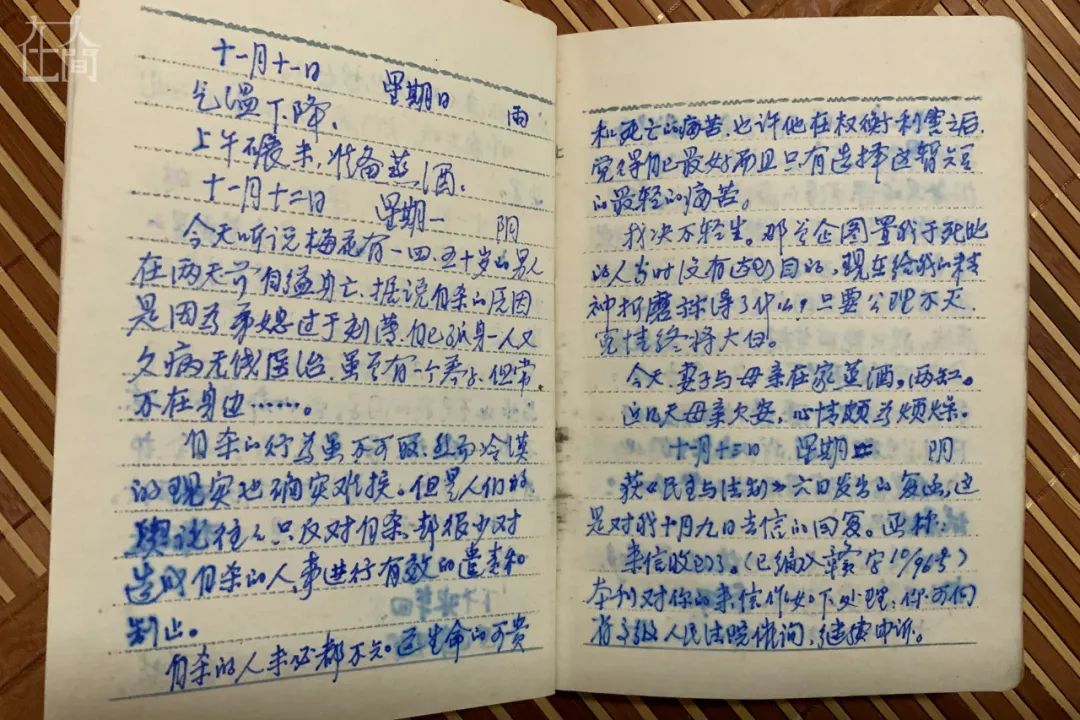 在人间
十一月十一日 星期日 雨
气温下降、
上午碾米,准备蒸酒.
十一月十二日 星期一 阴
今天听说梅花有一四、五十岁的男人
在两天前自缢身亡.据说自杀的原因
是因为弟媳过于刻薄,自己孤身一人又
久病无钱医治.虽会有一个养子,但常
不在身边……。
自杀的行为虽不可取.然而冷漠
的现实也确实难挨。但是人们的
舆论往々只反对自杀.却很少对
造成自杀的人事进行有效的谴责和
制止。
自杀的人未必都不知道生命的可贵
和死亡的痛苦,也许他在权衡了利害之后,
觉得自己最好而且只有选择这暂短
的最轻的痛苦。
我决不轻生。那曾企图置我于死地
的人当时没有达到目的,现在给我的精
神折磨算得了什么,只要公理不灭,
冤情终将大白。
今天.妻子与母亲在家蒸酒。两缸。
这几天母亲欠安,心情颇为烦燥.
十一月十三日 星期二 阴
获《民主与法制》六日发出的复函,这
是对我十月九日去信的回复。函称:
来信收到了。(已编入 字10/96号)
本刊对你的来信作如下处理:你可向
各级人民法院催询,继续申诉。